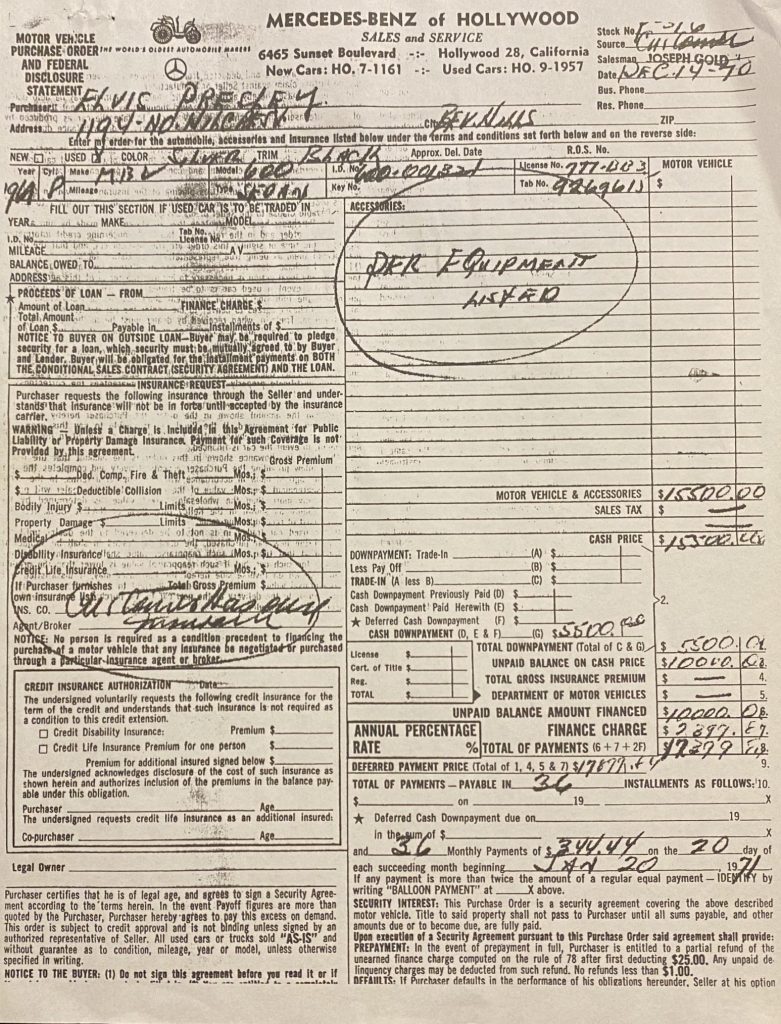 MOTOR VEHICLE
PURCHASE ORDER
AND FEDERAL
DISCLOSURE
STATEMENT
THE WORLD'S OLDEST AUTOMOBILE MAKERS
MERCEDES-BENZ of HOLLYWOOD
SALES and SERVICE
6465 Sunset Boulevard -:- Hollywood 28, California
New Cars: HO. 7-1161 -:- Used Cars: HO. 9-1957
Stock No.
Source Customer
Salesman JOSEPH GOLD
Date DEC-14-70
Bus. Phone
Res. Phone
Purchaser: ELVIS PRESLEY
Address 1194-NO. HILLCREST City BEV HILLS ZIP
Enter my order for the automobile, accessories and insurance listed below under the terms and conditions set forth below and on the reverse side:
NEW USED COLOR SILVER TRIM BLACK Approx. Del. Date R.O.S. No.
Year 1969 Cyl: 8 Make M.B. Model 600 I.D. No. License No. 777-DD3 MOTOR VEHICLE
Mileage Type SEDAN Key No. Tab No. 9269611 $
FILL OUT THIS SECTION IF USED CAR IS TO BE TRADED IN
YEAR MAKE MODEL
I.D. No. Tab No. License No.
MILEAGE AV
BALANCE OWED TO
ADDRESS
ACCESSORIES:
PER EQUIPMENT
LISTED
★ PROCEEDS OF LOAN – FROM
Amount of Loan FINANCE CHARGE $
Total Amount
of Loan $ Payable in Installments of $
NOTICE TO BUYER ON OUTSIDE LOAN—Buyer may be required to pledge
security for a loan, which security must be mutually agreed to by Buyer
and Lender. Buyer will be obligated for the installment payments on BOTH
THE CONDITIONAL SALES CONTRACT (SECURITY AGREEMENT) AND THE LOAN.
INSURANCE REQUEST
Purchaser requests the following insurance through the Seller and under-
stands that insurance will not be in force until accepted by the insurance
carrier.
WARNING — Unless a Charge is Included in this Agreement for Public
Liability or Property Damage Insurance, Payment for such Coverage is not
Provided by this agreement.
Gross Premium
$ Ded. Comp., Fire & Theft Mos.; $
$ Deductible Collision Mos.; $
Bodily Injury $ Limits Mos.; $
Property Damage $ Limits Mos.; $
Medical Mos.; $
Disability Insurance Mos.; $
Credit Life Insurance Mos.; $
If Purchaser furnishes Total Gross Premium $
own insurance list
INS. CO. Customer Has own
Insurance
Agent/Broker
NOTICE: No person is required as a condition precedent to financing the
purchase of a motor vehicle that any insurance be negotiated or purchased
through a particular insurance agent or broker.
CREDIT INSURANCE AUTHORIZATION Date
The undersigned voluntarily requests the following credit insurance for the
term of the credit and understands that such insurance is not required as
a condition to this credit extension.
Credit Disability Insurance: Premium $
Credit Life Insurance Premium for one person $
Premium for additional insured signed below $
The undersigned acknowledges disclosure of the cost of such insurance as
shown herein and authorizes inclusion of the premiums in the balance pay-
able under this obligation.
Purchaser Age
The undersigned requests credit life insurance as an additional insured:
Co-purchaser Age
Legal Owner
Purchaser certifies that he is of legal age, and agrees to sign a Security Agree-
ment according to the terms herein. In the event Payoff figures are more than
quoted by the Purchaser, Purchaser hereby agrees to pay this excess on demand.
This order is subject to credit approval and is not binding unless signed by an
authorized representative of Seller. All used cars or trucks sold "AS-IS" and
without guarantee as to condition, mileage, year or model, unless otherwise
specified in writing.
NOTICE TO THE BUYER: (1) Do not sign this agreement before you read it or if
MOTOR VEHICLE & ACCESSORIES $15500.00
SALES TAX $ —
CASH PRICE $15500.00
DOWNPAYMENT: Trade-In (A) $
Less Pay Off (B) $
TRADE-IN (A less B) (C) $
Cash Downpayment Previously Paid (D) $
Cash Downpayment Paid Herewith (E) $
2.
★ Deferred Cash Downpayment (F) $
CASH DOWNPAYMENT (D, E & F) (G) $5500.00
TOTAL DOWNPAYMENT (Total of C & G) $5500.00
License $
Cert. of Title $
Reg. $
TOTAL $
UNPAID BALANCE ON CASH PRICE $10000.00
TOTAL GROSS INSURANCE PREMIUM $ — 4.
DEPARTMENT OF MOTOR VEHICLES $ — 5.
UNPAID BALANCE AMOUNT FINANCED $10000.00
ANNUAL PERCENTAGE
RATE %
FINANCE CHARGE $
TOTAL OF PAYMENTS (6 + 7 + 2F) $
DEFERRED PAYMENT PRICE (Total of 1, 4, 5 & 7) $ 9.
TOTAL OF PAYMENTS – PAYABLE IN 36 INSTALLMENTS AS FOLLOWS: 10.
$ on 19 X
★ Deferred Cash Downpayment due on 19
in the sum of $ X
and 36 Monthly Payments of $344.44 on the 20 day of
each succeeding month beginning JAN 20, 1971
If any payment is more than twice the amount of a regular equal payment — IDENTIFY by
writing "BALLOON PAYMENT" at X above.
SECURITY INTEREST: This Purchase Order is a security agreement covering the above described
motor vehicle. Title to said property shall not pass to Purchaser until all sums payable, and other
amounts due or to become due, are fully paid.
Upon execution of a Security Agreement pursuant to this Purchase Order said agreement shall provide:
PREPAYMENT: In the event of prepayment in full, Purchaser is entitled to a partial refund of the
unearned finance charge computed on the rule of 78 after first deducting $25.00. Any unpaid de-
linquency charges may be deducted from such refund. No refunds less than $1.00.
DEFAULTS: If Purchaser defaults in the performance of his obligations hereunder, Seller at his option